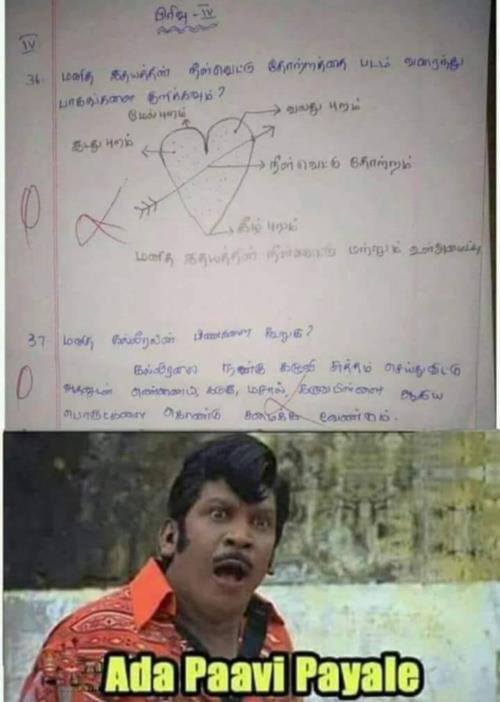 பிரிவு - IV
IV
36. மனித இதயத்தின் நீள்வெட்டு தோற்றத்தை படம் வரைந்து
பாகங்களை குறிக்கவும்?
மேல்புறம்
வலது புறம்
இடது புறம்
நீள்வெட்டு தோற்றம்
கீழ் புறம்
0
மனித இதயத்தின் நீள்வெட்டு மற்றும் உள்அமைப்பு
37 மனித கல்லீரலின் கூறுக?
0
கல்லீரலை நன்கு கழுவி சுத்தம் செய்துவிட்டு
அதனுடன் எண்ணெய், கடுகு, மசால், கருவேப்பிள்ளை ஆகிய
பொருட்களை கொண்டு சமைக்க வேண்டும்.
Ada Paavi Payale